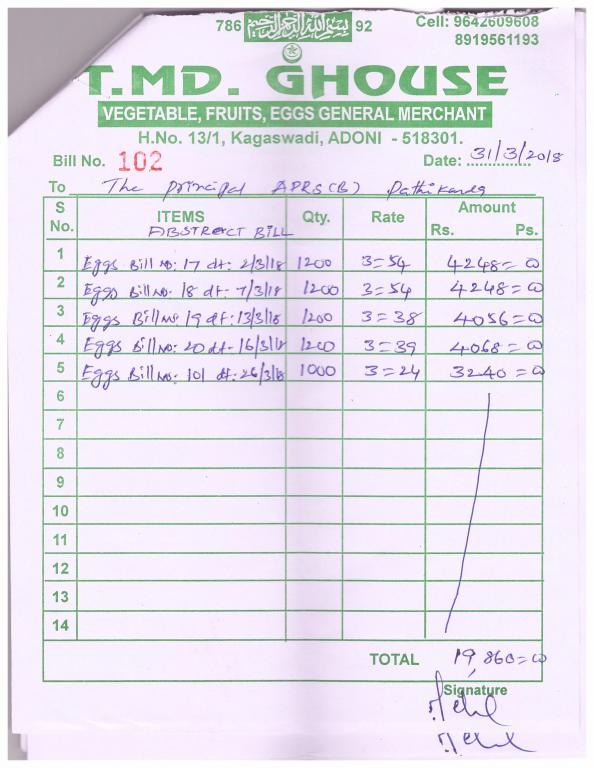 786 بسم الله الرحمن الرحيم 92
Cell: 9642609608
8919561193
T.MD. GHOUSE
VEGETABLE, FRUITS, EGGS GENERAL MERCHANT
H.No. 13/1, Kagaswadi, ADONI - 518301.
Bill No. 102 Date: 31/3/2018
To The principal APRS(B)
S No. ITEMS Qty. Rate Amount Rs. Ps.
ABSTRACT BILL
1 Eggs Bill No: 17 dt: 2/3/18 1200 3=54 4248=00
2 Eggs Bill No: 18 dt: 7/3/18 1200 3=54 4248=00
3 Eggs Bill No: 19 dt: 13/3/18 1200 3=38 4056=00
4 Eggs Bill No: 20 dt: 16/3/18 1200 3=39 4068=00
5 Eggs Bill No: 101 dt: 26/3/18 1000 3=24 3240=00
6
7
8
9
10
11
12
13
14
TOTAL 19,860=00
Signature